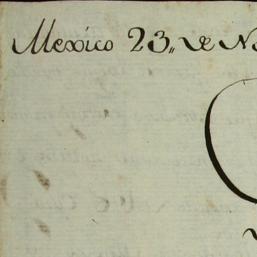 Mexico 23,, de No